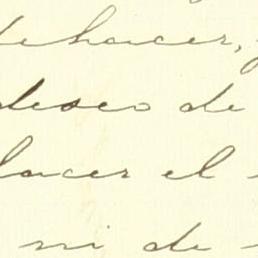 dehacer,
deseo de
hacer el
ni de